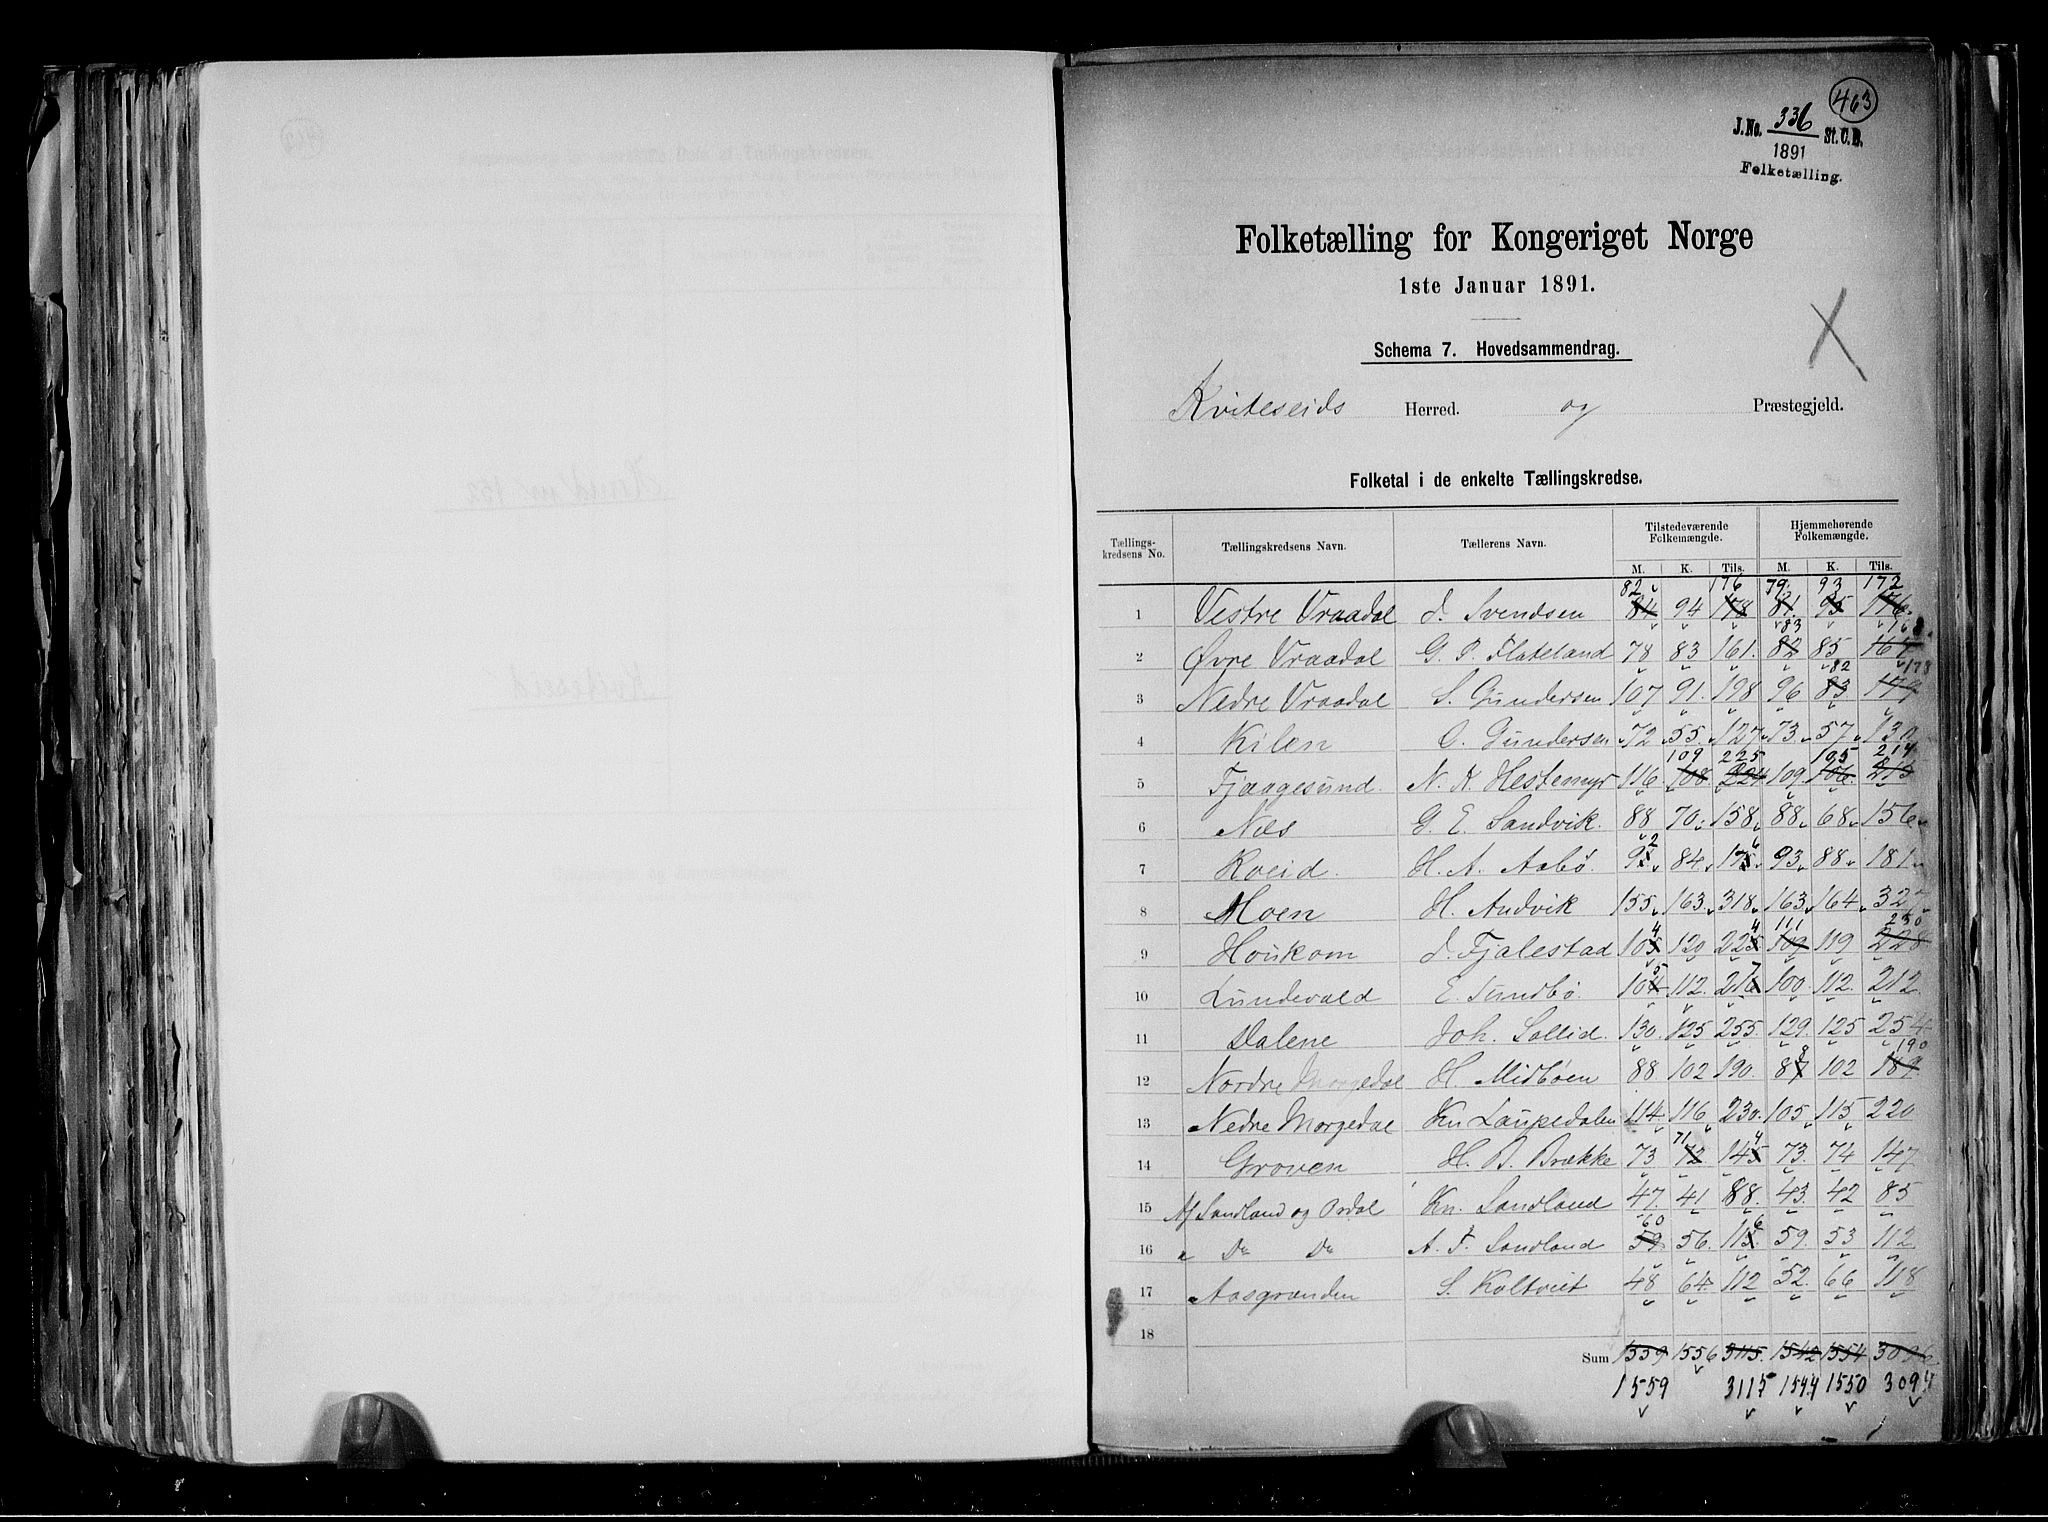 463
J.No. 336 St.C.B.
1891
Folketælling.
Folketælling for Kongeriget Norge
1ste Januar 1891.
Schema 7. Hovedsammendrag.
Kviteseids Herred. og Præstegjeld.
Folketal i de enkelte Tællingskredse.
Tællings-kredsens No. Tællingskredsens Navn. Tællerens Navn. Tilstedeværende Folkemængde. Hjemmehørende Folkemængde.
M. K. Tils. M. K. Tils.
82 176 79 93 172
1 Vestre Vraadal J. Svendsen 84 94 178 81 95 176
83 168
2 Øvre Vraadal G. P. Flateland 78 83 161 82 85 167
82 178
3 Nedre Vraadal S. Gundersen 107 91 198 96 83 179
4 Kilen O. Gundersen 72 55 127 73 57 130
109 225 105 214
5 Fjaagesund N. K. Hestemyr 116 108 224 109 106 215
6 Næs G. E. Sandvik 88 70 158 88 68 156
2 6
7 Kveid H. A. Aabø 91 84 175 93 88 181
8 Moen H. Andvik 155 163 318 163 164 327
4 4 111 230
9 Houkom J. Fjalestad 105 120 225 109 119 228
5 7
10 Lundevald E. Sundbø 104 112 216 100 112 212
11 Dalene Joh. Sollid 130 125 255 129 125 254
8 190
12 Nordre Morgedal H. Midbøen 88 102 190 87 102 189
13 Nedre Morgedal Kn. Laupedalen 114 116 230 105 115 220
71 4
14 Groven H. B. Brække 73 72 145 73 74 147
15 Af Sandland og Ordal Kn. Sandland 47 41 88 43 42 85
60 6
16 " Do Do A. T. Sandland 59 56 115 59 53 112
17 Aasgrænden S. Koltveit 48 64 112 52 66 118
18
Sum 1559 1556 3115 1542 1554 3096
1559 3115 1544 1550 3094